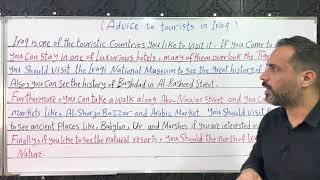 (Advice to tourists in Iraq)
Iraq is one of the touristic Countries you like to visit it. If you Come to
you Can Stay in one of luxurious hotels, many of them overlook the Tig
you Should Visit the Iraqi National Museum to See the great history of
Also, you Can See the history of Baghdad in Al-Rasheed Street.
Furthermore, you Can take a walk along Abu-Nawas Street and you Ca
markets like, Al-Shorja Bazzar and Arabic Market. You Should Visit
to See ancient Places Like, Babylon, Ur and Marshes if you are interested in
Finally, if you like to See the natural resorts, you Should the north of Iraq
Nature.